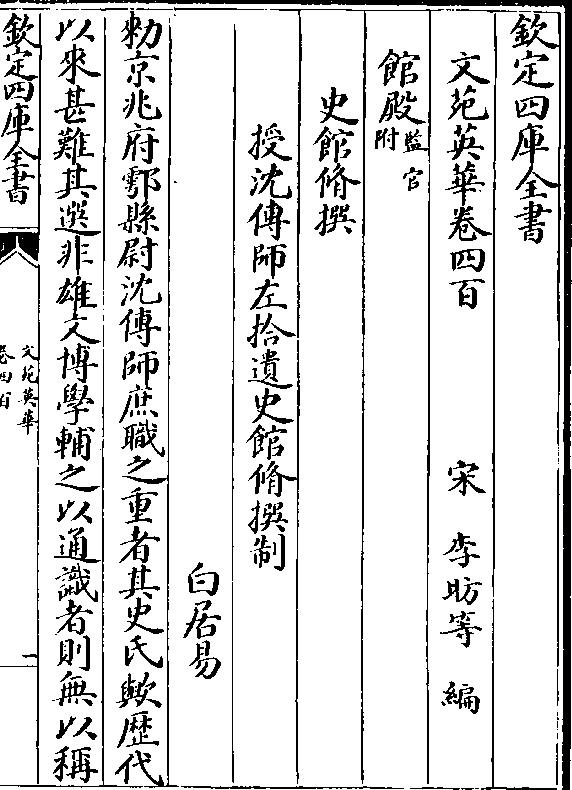 欽定四庫全書
文苑英華卷四百
宋 李昉等 編
館殿監官附
史館脩撰
授沈傳師左拾遺史館脩撰制
白居易
勑京兆府鄠縣尉沈傳師庶職之重者其史氏歟歴代
以來甚難其選非雄文博學輔之以通識者則無以稱
欽定四庫全書
文苑英華
卷四百
一